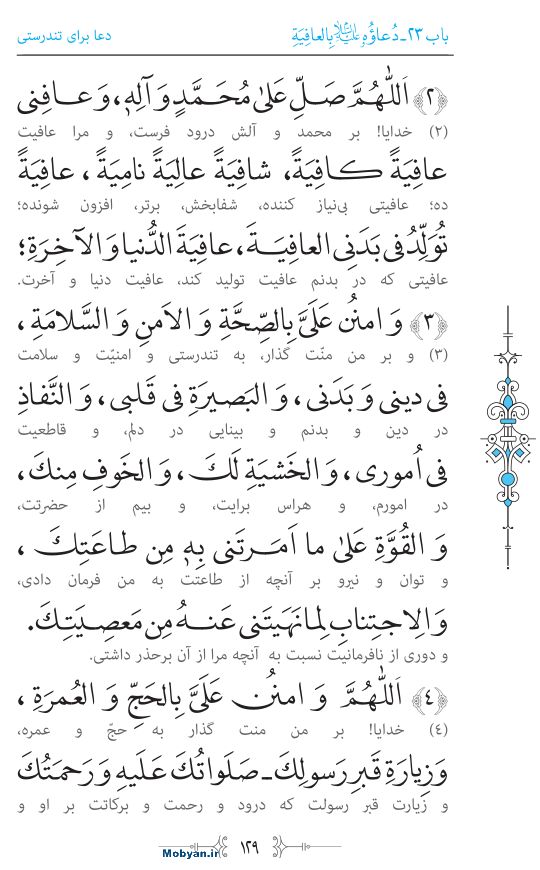 باب ۲۳ـ دُعاؤُهُ عَلَيْهِ‌السَّلام بِالعافِيَةِ
دعا برای تندرستی
﴿۲﴾ اَللّٰهُمَّ صَلِّ عَلیٰ مُحَمَّدٍ وَ آلِهٖ، وَ عـافِنی
(۲) خدایا! بر محمد و آلش درود فرست، و مرا عافیت
عافِيَةً كـافِيَةً، شافِيَةً عالِيَةً نامِيَةً ، عافِيَةً
ده؛ عافیتی بی‌نیاز کننده، شفابخش، برتر، افزون شونده؛
تُوَلِّدُ فی بَدَنِی العافِيَـةَ، عافِيَةَ الدُّنيا وَ الآخِرَةِ؛
عافیتی که در بدنم عافیت تولید کند، عافیت دنیا و آخرت.
﴿۳﴾ وَ امنُن عَلَیَّ بِالصِّحَّةِ وَ الاَمنِ وَ السَّلامَةِ ،
(۳) و بر من منّت گذار، به تندرستی و امنیّت و سلامت
فی دينی وَ بَدَنی ، وَ البَصيرَةِ فی قَلبی ، وَ النَّفاذِ
در دین و بدنم و بینایی در دلم، و قاطعیت
فی اُموری ، وَ الخَشيَةِ لَكَ ، وَ الخَوفِ مِنكَ ،
در امورم، و هراس برایت، و بیم از حضرتت،
وَ القُوَّةِ عَلیٰ ما اَمَـرتَنی بِهٖ مِن طـاعَتِكَ ،
و توان و نیرو بر آنچه از طاعتت به من فرمان دادی،
وَ الِاجتِنابِ لِما نَهَيتَنی عَنـهُ مِن مَعصِيَتِـكَ.
و دوری از نافرمانیت نسبت به آنچه مرا از آن برحذر داشتی.
﴿٤﴾ اَللّٰهُمَّ وَ امنُن عَلَیَّ بِالحَجِّ وَ العُمرَةِ ،
(٤) خدایا! بر من منت گذار به حجّ و عمره،
وَ زِيارَةِ قَبرِ رَسولِكَ ـ صَلَواتُكَ عَلَيهِ وَ رَحمَتُكَ
و زیارت قبر رسولت که درود و رحمت و برکاتت بر او و
۱۲۹
Mobyan.ir